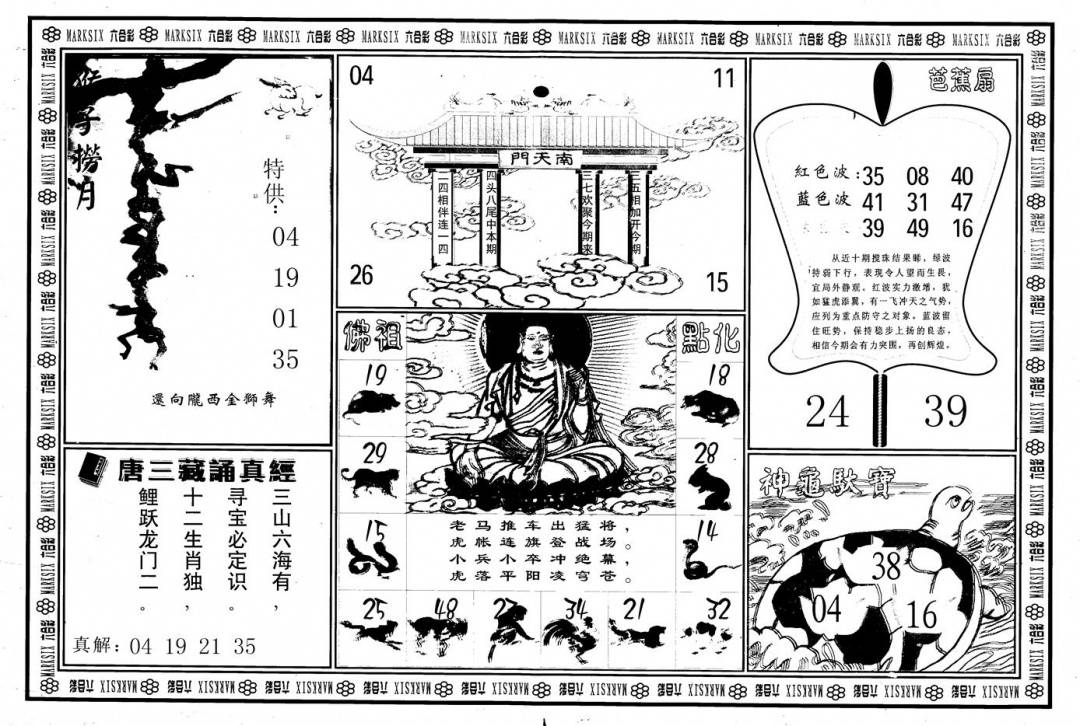 MARKSIX 六合彩 MARKSIX 六合彩 MARKSIX 六合彩 MARKSIX 六合彩 MARKSIX 六合彩 MARKSIX 六合彩 MARKSIX 六合彩 MARKSIX 六合彩 MARKSIX 六合彩 MARKSIX 六合彩
猴子撈月
特供：
04
19
01
35
還向隴西金獅舞
04
11
南天門
二四相伴连一四
四头八尾中本期
三七欢聚今期来
三五相加开今期
26
15
芭蕉扇
紅色波：35 08 40
蓝色波 41 31 47
39 49 16
从近十期搅珠结果睇，绿波
持弱下行，表现令人望而生畏，
宜局外静观。红波实力激增，犹
如猛虎添翼，有一飞冲天之气势，
应列为重点防守之对象。蓝波留
住旺势，保持稳步上扬的良态，
相信今期会有力突围，再创辉煌。
24 39
佛祖
點化
19
18
29
28
15
14
老马推车出猛将，
虎帐连旗登战场。
小兵小卒冲绝幕，
虎落平阳凌穹苍。
25 48 27 34 21 32
唐三藏誦真經
三山六海有，
寻宝必定识。
十二生肖独，
鲤跃龙门二。
真解：04 19 21 35
神龜馱寶
38
04
16